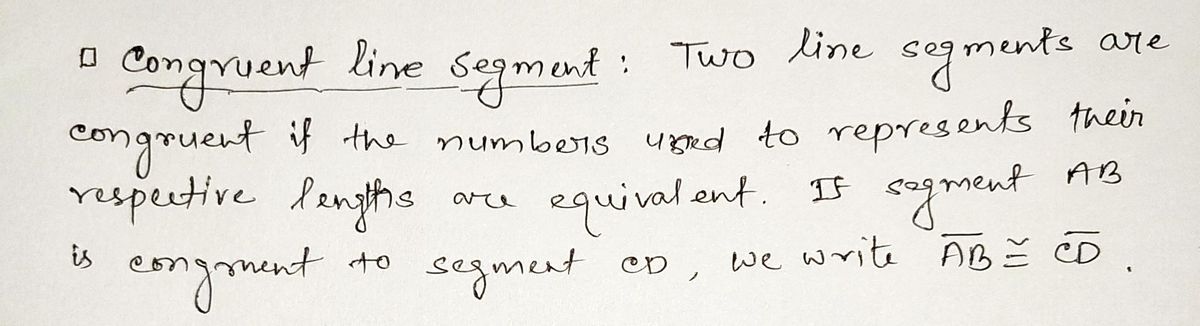 □ Congruent line segment : Two line segments are
congruent if the numbers used to represents their
respective lengths are equivalent. If segment AB
is congruent to segment CD, we write A̅B̅ ≅ C̅D̅.